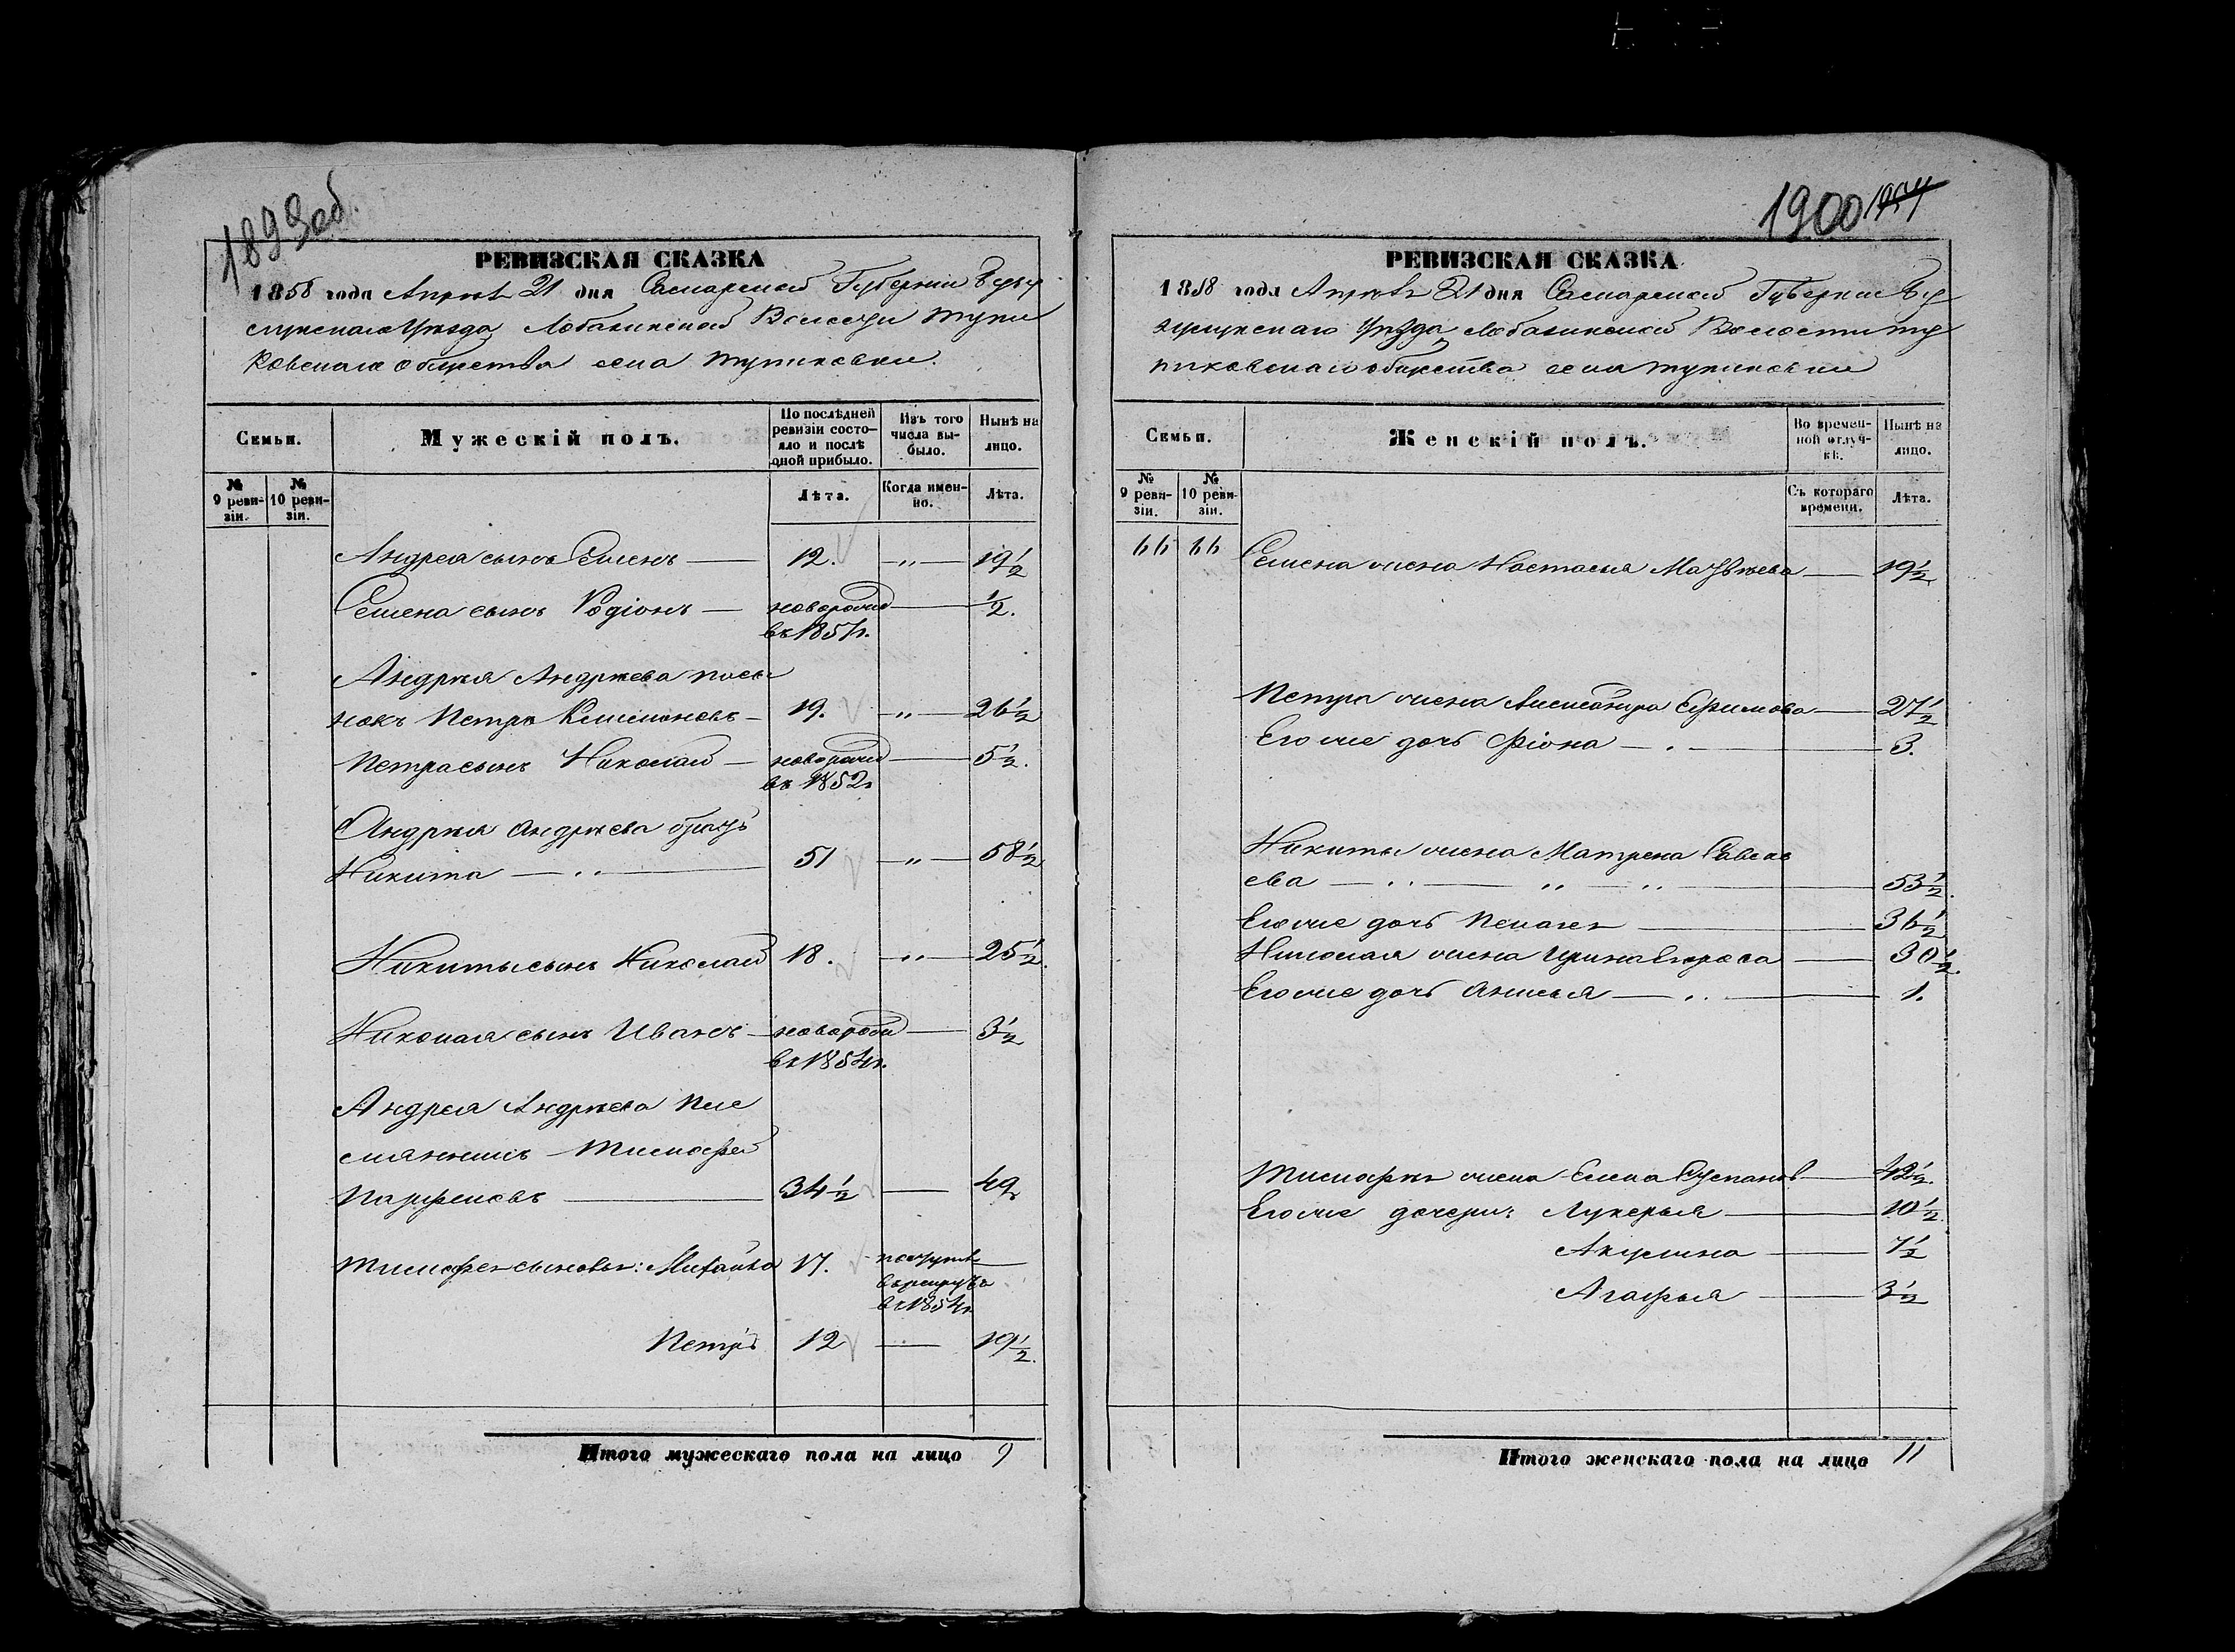 1899 об.
РЕВИЗСКАЯ СКАЗКА
1858 года Апреля 21 дня Самарской Губернiи Бузу
лукскаго Уѣзда Лобазинской Волости Тупи
ковскаго общества села Тупиковки.
Семьи.
Мужескiй полъ.
По послѣдней ревизiи состо-
яло и послѣ оной прибыло.
Изъ того числа вы-
было.
Нынѣ на лицо.
№ 9 реви-
зiи.
№ 10 реви-
зiи.
Лѣта.
Когда имен-
но.
Лѣта.
Андрея сынъ Семенъ — 12. — „ — 19 1/2
Семена сынъ Родiонъ — новорожд — 1/2.
въ 1857г.
Андрѣя Андрѣева пасы
нокъ Петръ — 19. — „ — 26 1/2
Петра сынъ Николай — новорожд — 5 1/2.
въ 1852г
Андрѣя Андрѣева братъ
Никита — 51 — „ — 58 1/2
Никиты сынъ Николай 18. — „ — 25 1/2.
Николая сынъ Иванъ — новорожд — 3 1/2
въ 1854г.
Андрея Андрѣева пле
мянникъ Тимофей
Парфеновъ — 34 1/2 — 42
Тимофея сыновья: Михайла 17. поступилъ —
въ рекруты
въ 1854г.
Петръ 12 — 19 1/2.
Итого мужескаго пола на лицо 9
1900
РЕВИЗСКАЯ СКАЗКА
1858 года Апреля 21 дня Самарской Губернiи Бу
зулукскаго Уѣзда Лобазинской Волости Ту
пиковскаго общества села Тупиковки
Семьи.
Женскiй полъ.
Во времен-
ной отлуч-
кѣ.
Нынѣ на лицо.
№ 9 реви-
зiи.
№ 10 реви-
зiи.
Съ котораго времени.
Лѣта.
66 66 Семена жена Настасья Матвѣева — 19 1/2
Петра жена Александра Ефимова — 27 1/2
Его же дочь Фiона — 3.
Никиты жена Матрена Савель
ева — „ — 53 1/2.
Его же дочь Пелагея — 36 1/2
Николая жена Ирина — 30 1/2.
Его же дочь Анисья — 1.
Тимофея жена Елена Степанов — 42 1/2.
Его же дочери: Лукерья — 10 1/2.
Акулина — 7 1/2
Агафья — 3 1/2
Итого женскаго пола на лицо 11